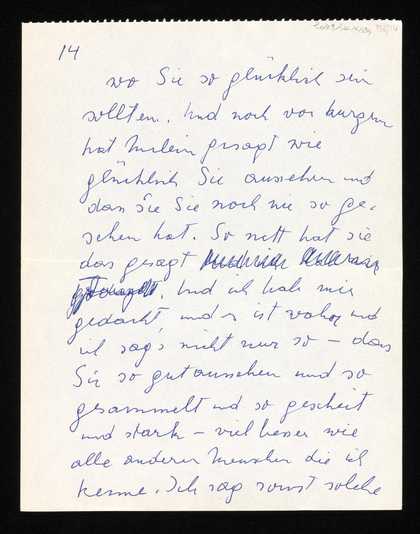 14
wo Sie so glücklich sein
sollten. Und noch vor kurzem
hat gesagt wie
glücklich Sie aussehen und
dass Sie Sie noch nie so ge-
sehen hat. So nett hat sie
das gesagt
. Und ich hab mir
gedacht, und es ist wahr und
ich sag's nicht nur so – dass
Sie so gut aussehen und so
gesammelt und so gescheit
und stark – viel besser wie
alle anderen Menschen die ich
kenne. Ich sag sonst solche